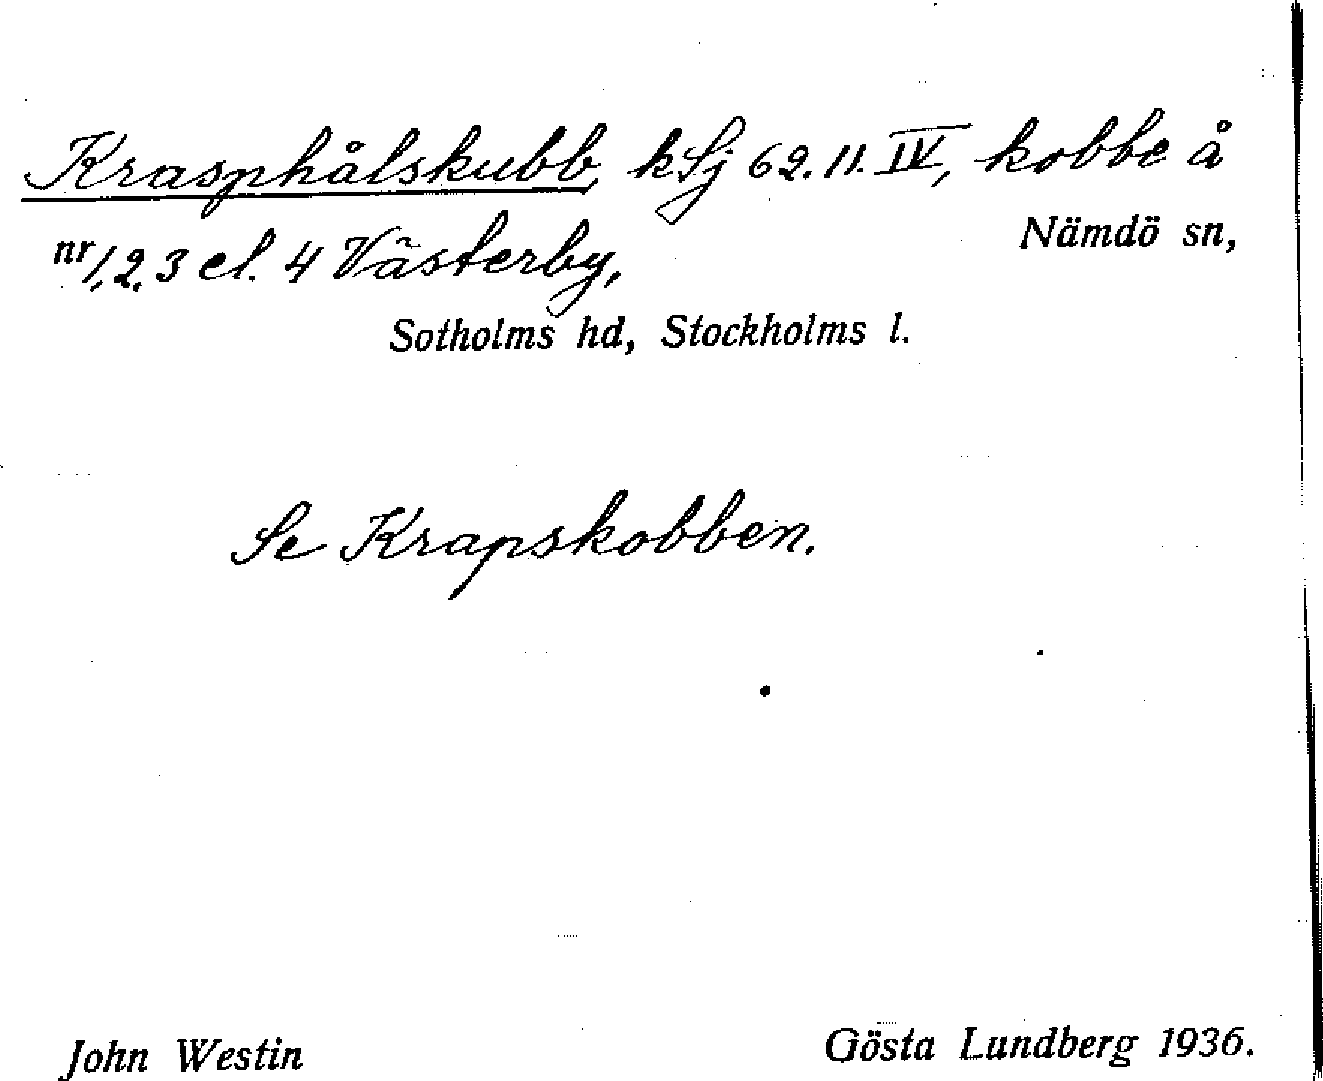 Krasphålskubb, kSj 62.11.IV, kobbe å
nr 1,2,3 el. 4 Västerby, Nämdö sn,
Sotholms hd, Stockholms l.
Se Krapskobben.
John Westin Gösta Lundberg 1936.